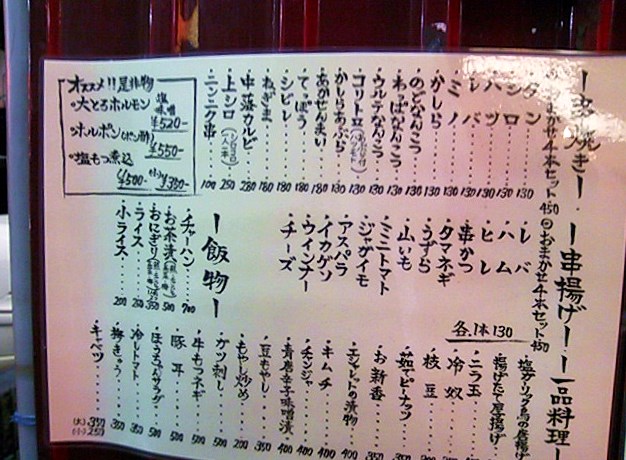 ー串焼きー
◎おまかせ4本セット 450
・タン 130
・シロ 130
・ハツ 130
・レバ 130
・ミノ 130
・かしら 130
・のどなんこつ 130
・わっぱなんこつ 130
・ウルテなんこつ 130
・コリトロ 130
・かしらあぶら 130
・あかせんまい 180
・てっぽう 180
・シビレ 180
・ねぎま 180
・中落カルビ 280
・上シロ 250
・ニンニク串 100
オススメ!!是非物
・大とろホルモン 塩 味噌 ¥520-
・ホルポン(ポン酢) ¥550-
・塩もつ煮込 ¥500- (小)¥350-
ー串揚げー
◎おまかせ4本セット 450
・レバ
・ハム
・ヒレ
・串かつ
・タマネギ
・うずら
・山いも
・ミニトマト
・ジャガイモ
・アスパラ
・イカゲソ
・ウインナー
・チーズ
各1本130
ー飯物ー
・チャーハン 700
・お茶漬 500
・おにぎり 350
・ライス 250
・小ライス 200
ー一品料理ー
・塩ガーリック鳥の唐揚げ
・揚げたて厚揚げ
・ニラ玉
・冷奴
・枝豆
・茹でピーナッツ
・お新香
・エシャレットの漬物
・キムチ 400
・チャンジャ 400
・青唐辛子味噌漬 400
・豆もやし
・もやし炒め 200
・ガツ刺し 500
・牛もつネギ 500
・豚耳 500
・ほうちゃんサラダ 500
・冷しトマト 350
・挽きゅう 350
・キャベツ (大)350 (小)250